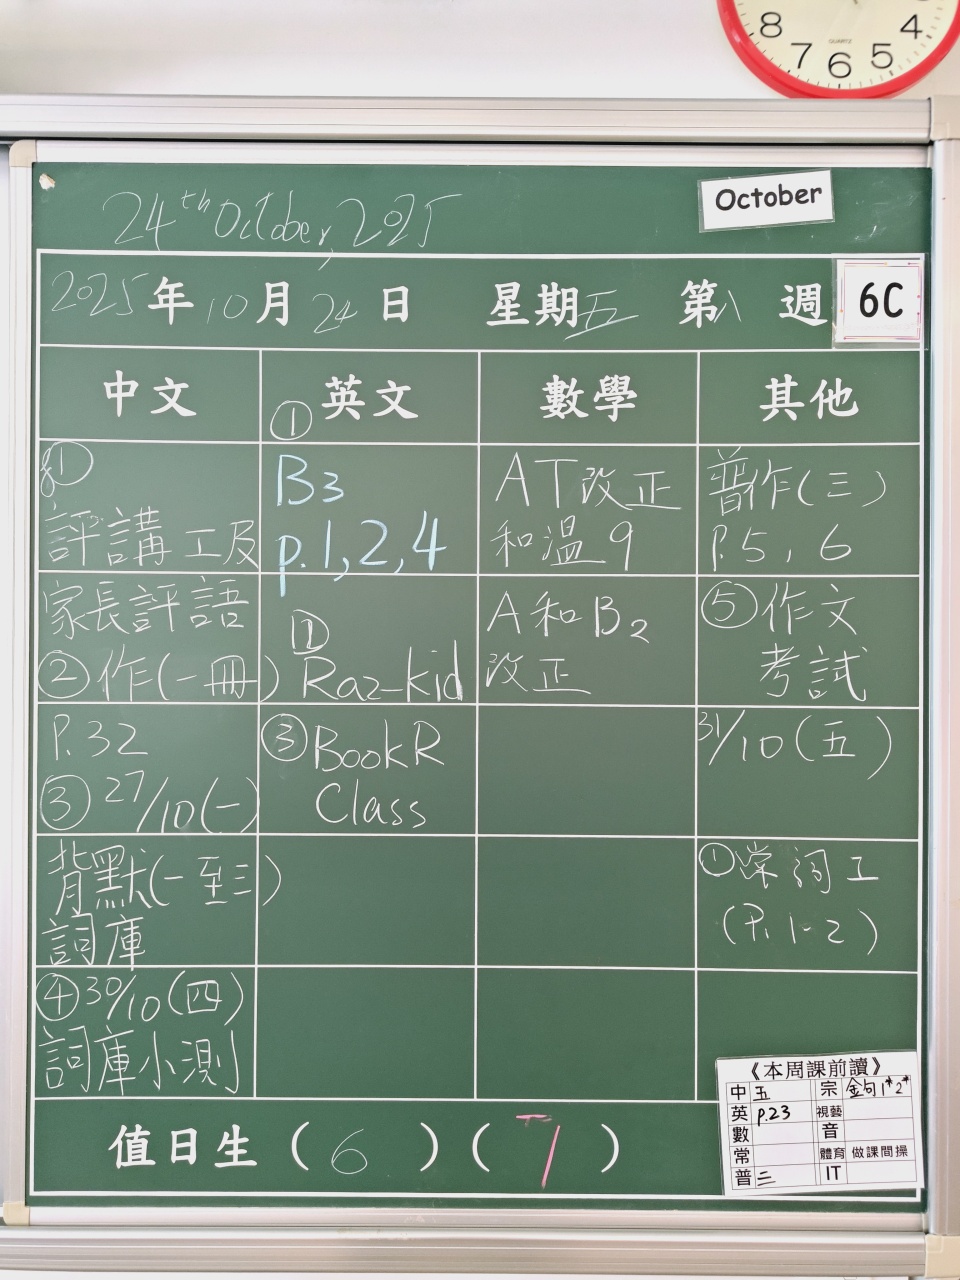 8
4
7
6
5
QUARTZ
24th October, 2025
October
2025年10月24日 星期五 第八週
6C
中文
英文
數學
其他
①
評講工及
家長評語
②作(一冊)
P.32
③27/10(一)
背默(一至三)
詞庫
④30/10(四)
詞庫小測
①
B3
p.1,2,4
②
Raz-kid
③BookR
Class
AT改正
和溫9
A和B2
改正
普作(三)
P.5,6
⑤作文
考試
31/10(五)
①常詞工
(P.1-2)
《本周課前讀》
中 五 宗 金句1*2*
英 p.23 視藝
數 音
常 體育 做課間操
普 三 IT
值日生(6)(7)